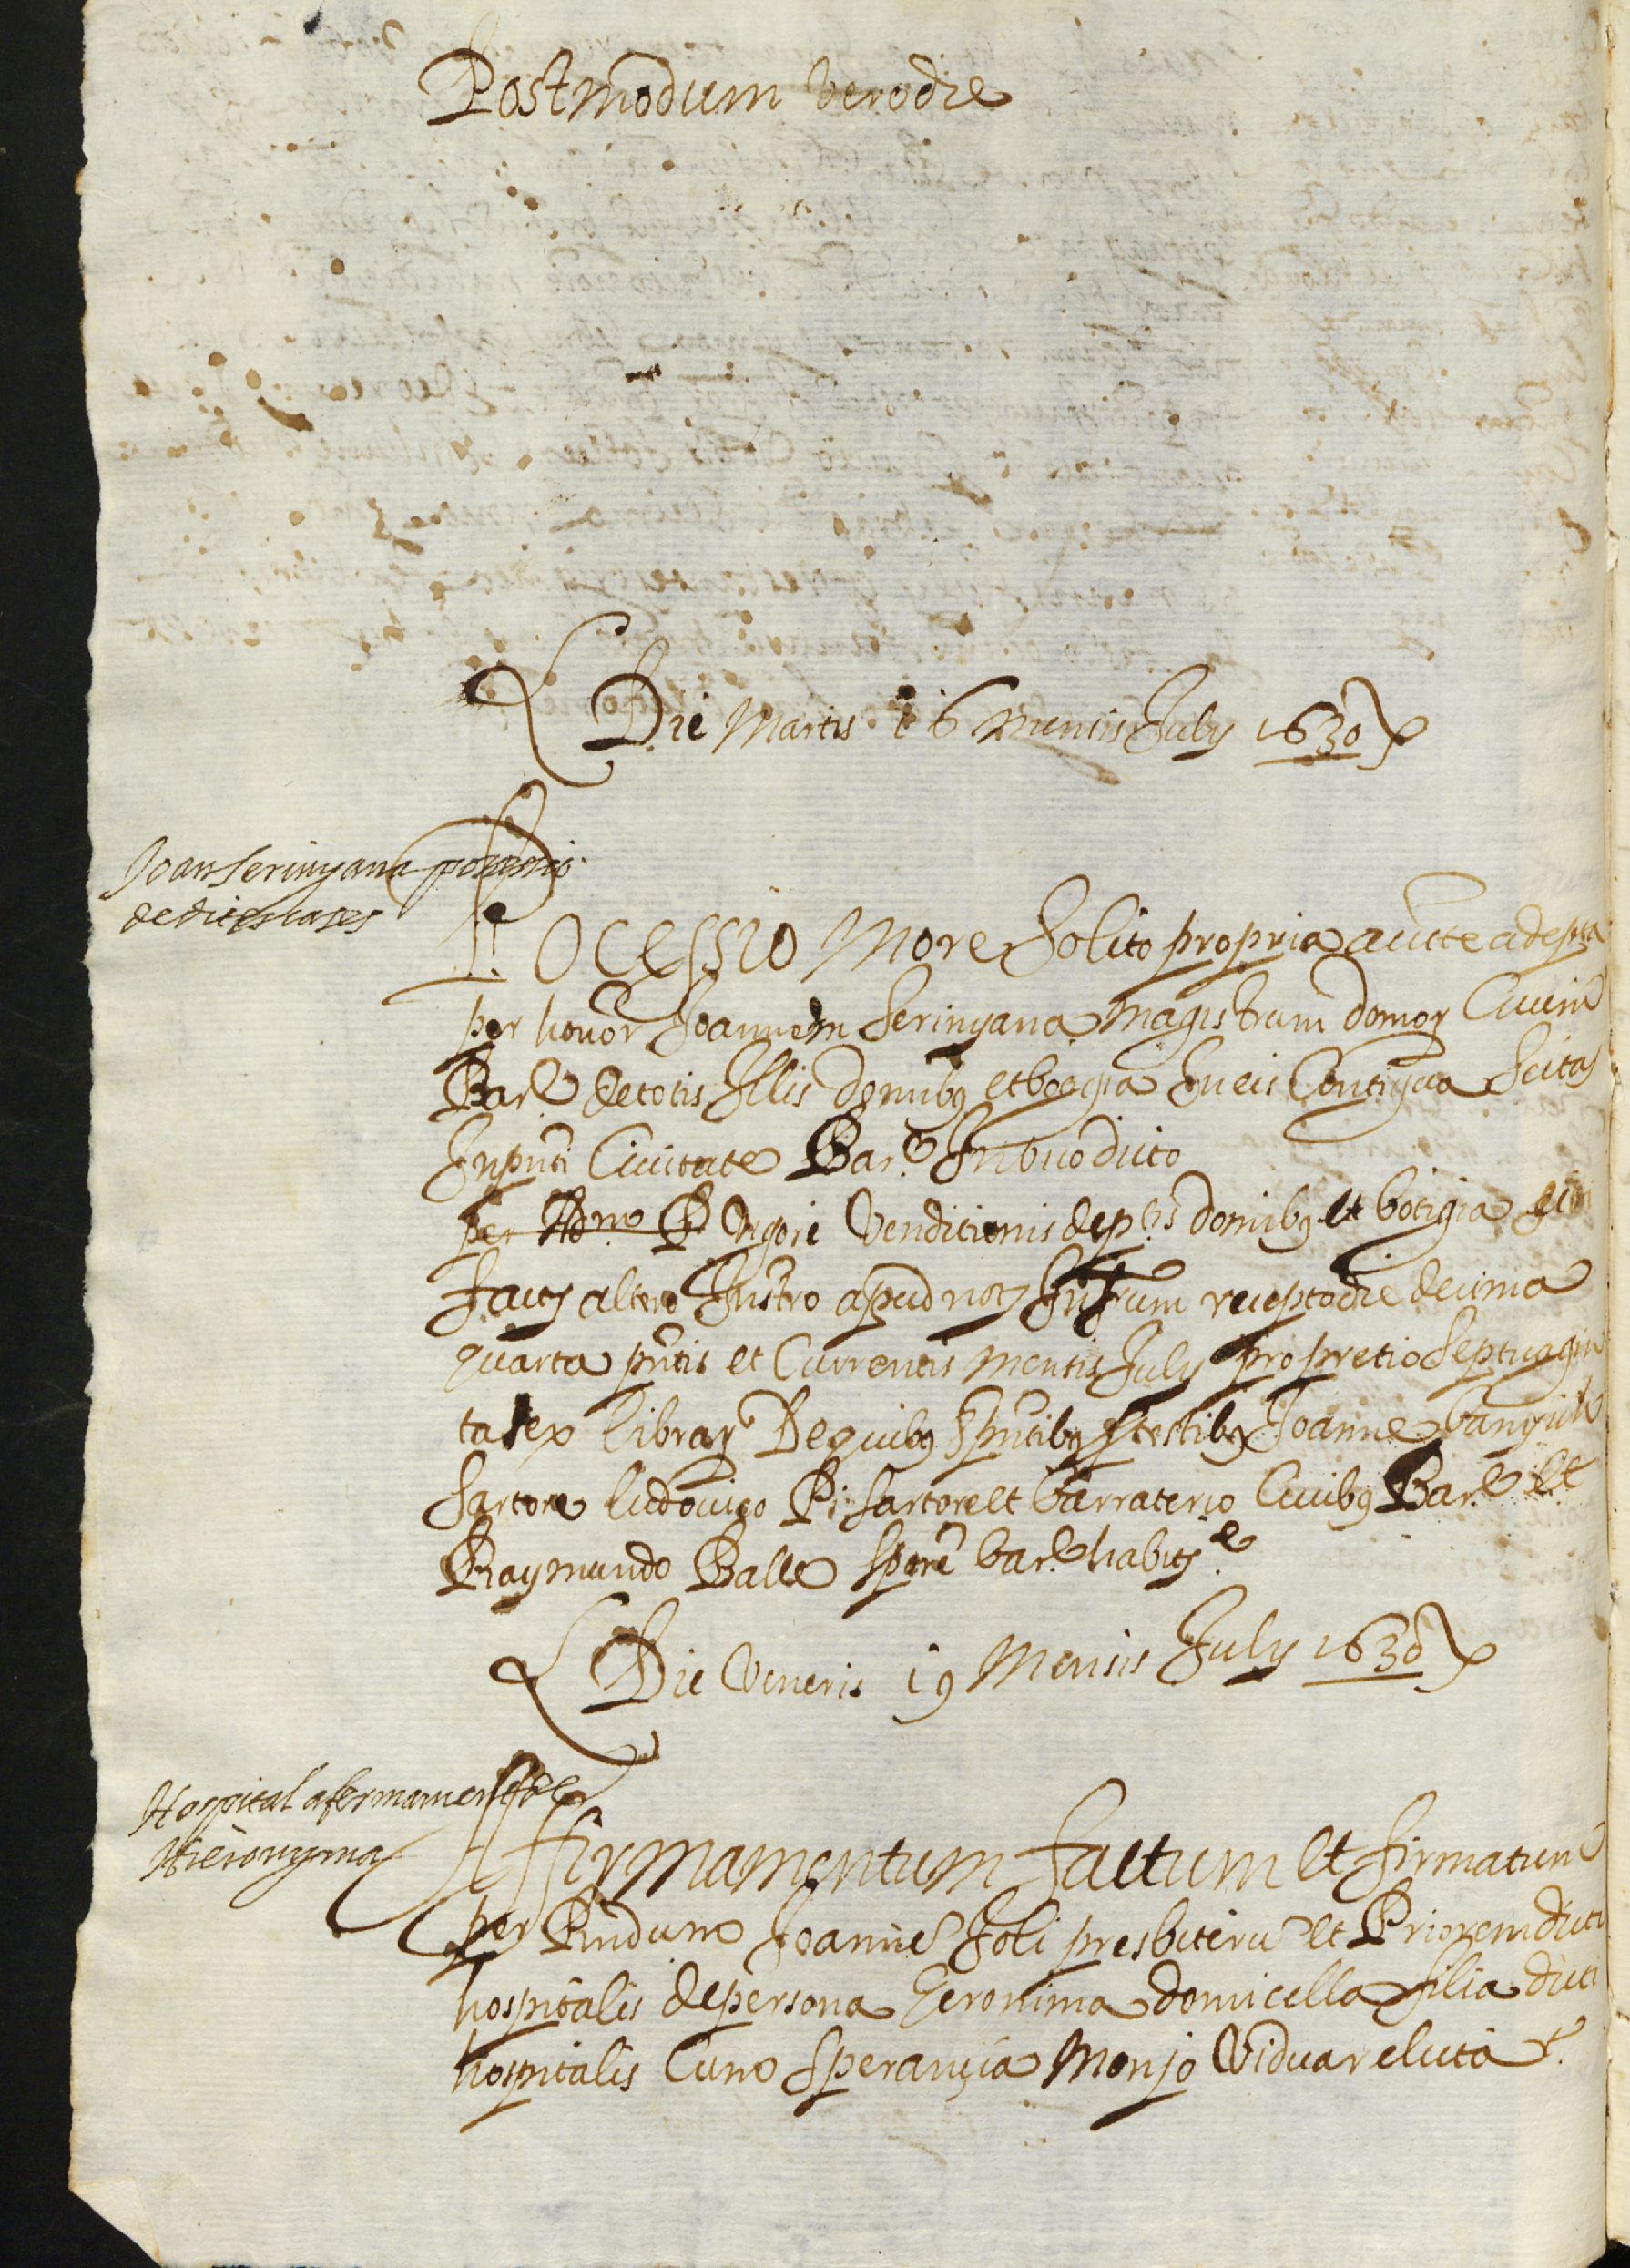 Postmodum verodie
Die Martis 16 mensis July 1630
Joan Serinyana possessio
de dites cases
Pocessio more solito propria aucte adepta
per honor Joannem Serinyana magistrum domor Civem
Bar de totis Illis domibq et botigia In eis Contigua Scitas
In pnti Civitate Bar In vico dicto
per Vigore Venditionis de pctis domibq et botigia
factj altero Instro apud not Infrum recepto die decima
quarta pntis et Currentis mensis July pro pretio septuagin
tasex librar De quibq pntibq ptestibq Joanne
Sartore ludovico Pi sartore et barraterio Civibq Bar et
Raymundo Balle scptre bar habitj
Die Veneris 19 Mensis July 1630
Hospital afermament de
Hieronyma
Affirmamentum factum et firmatum
per Rndum Joanne Soli presbiteru et Priorem dicti
hospitalis de persona Geronima domicella filia dicti
hospitalis Cum Sperancia Monjo Vidua relicta